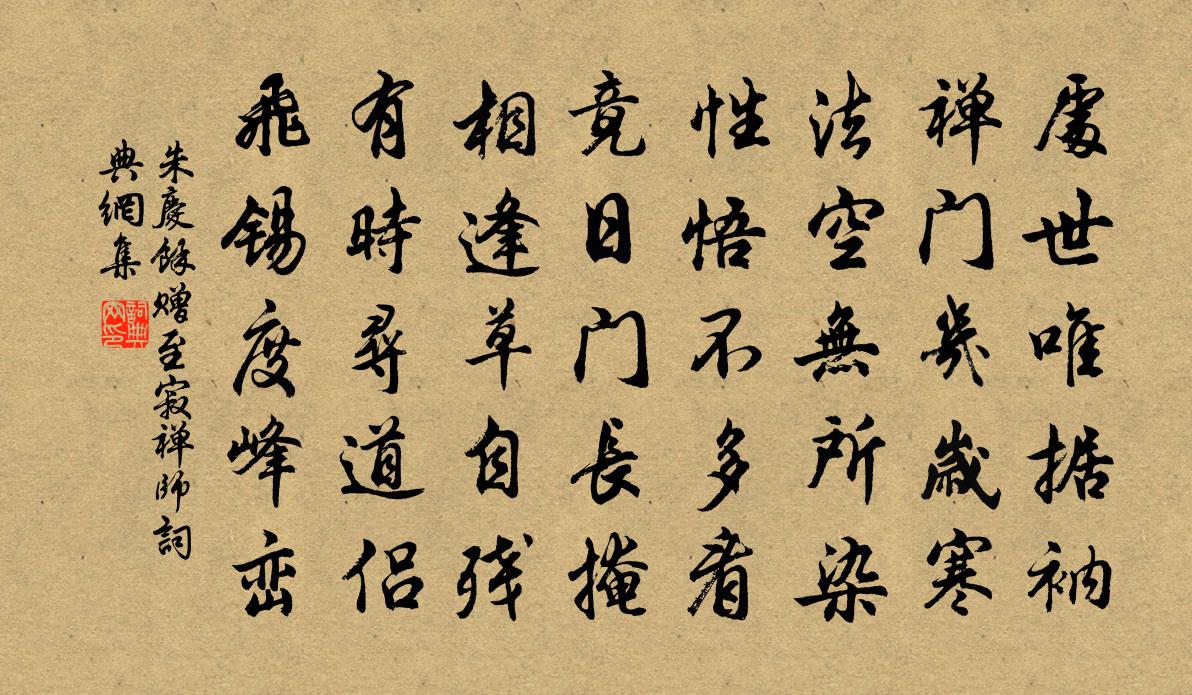 處世唯据衲
禅门幾歲寒
法空無所染
性悟不多看
竟日门長掩
相逢草自残
有時尋道侣
飛锡度峰峦
朱慶餘赠至寂禅師詞
典網集
詞典
网印